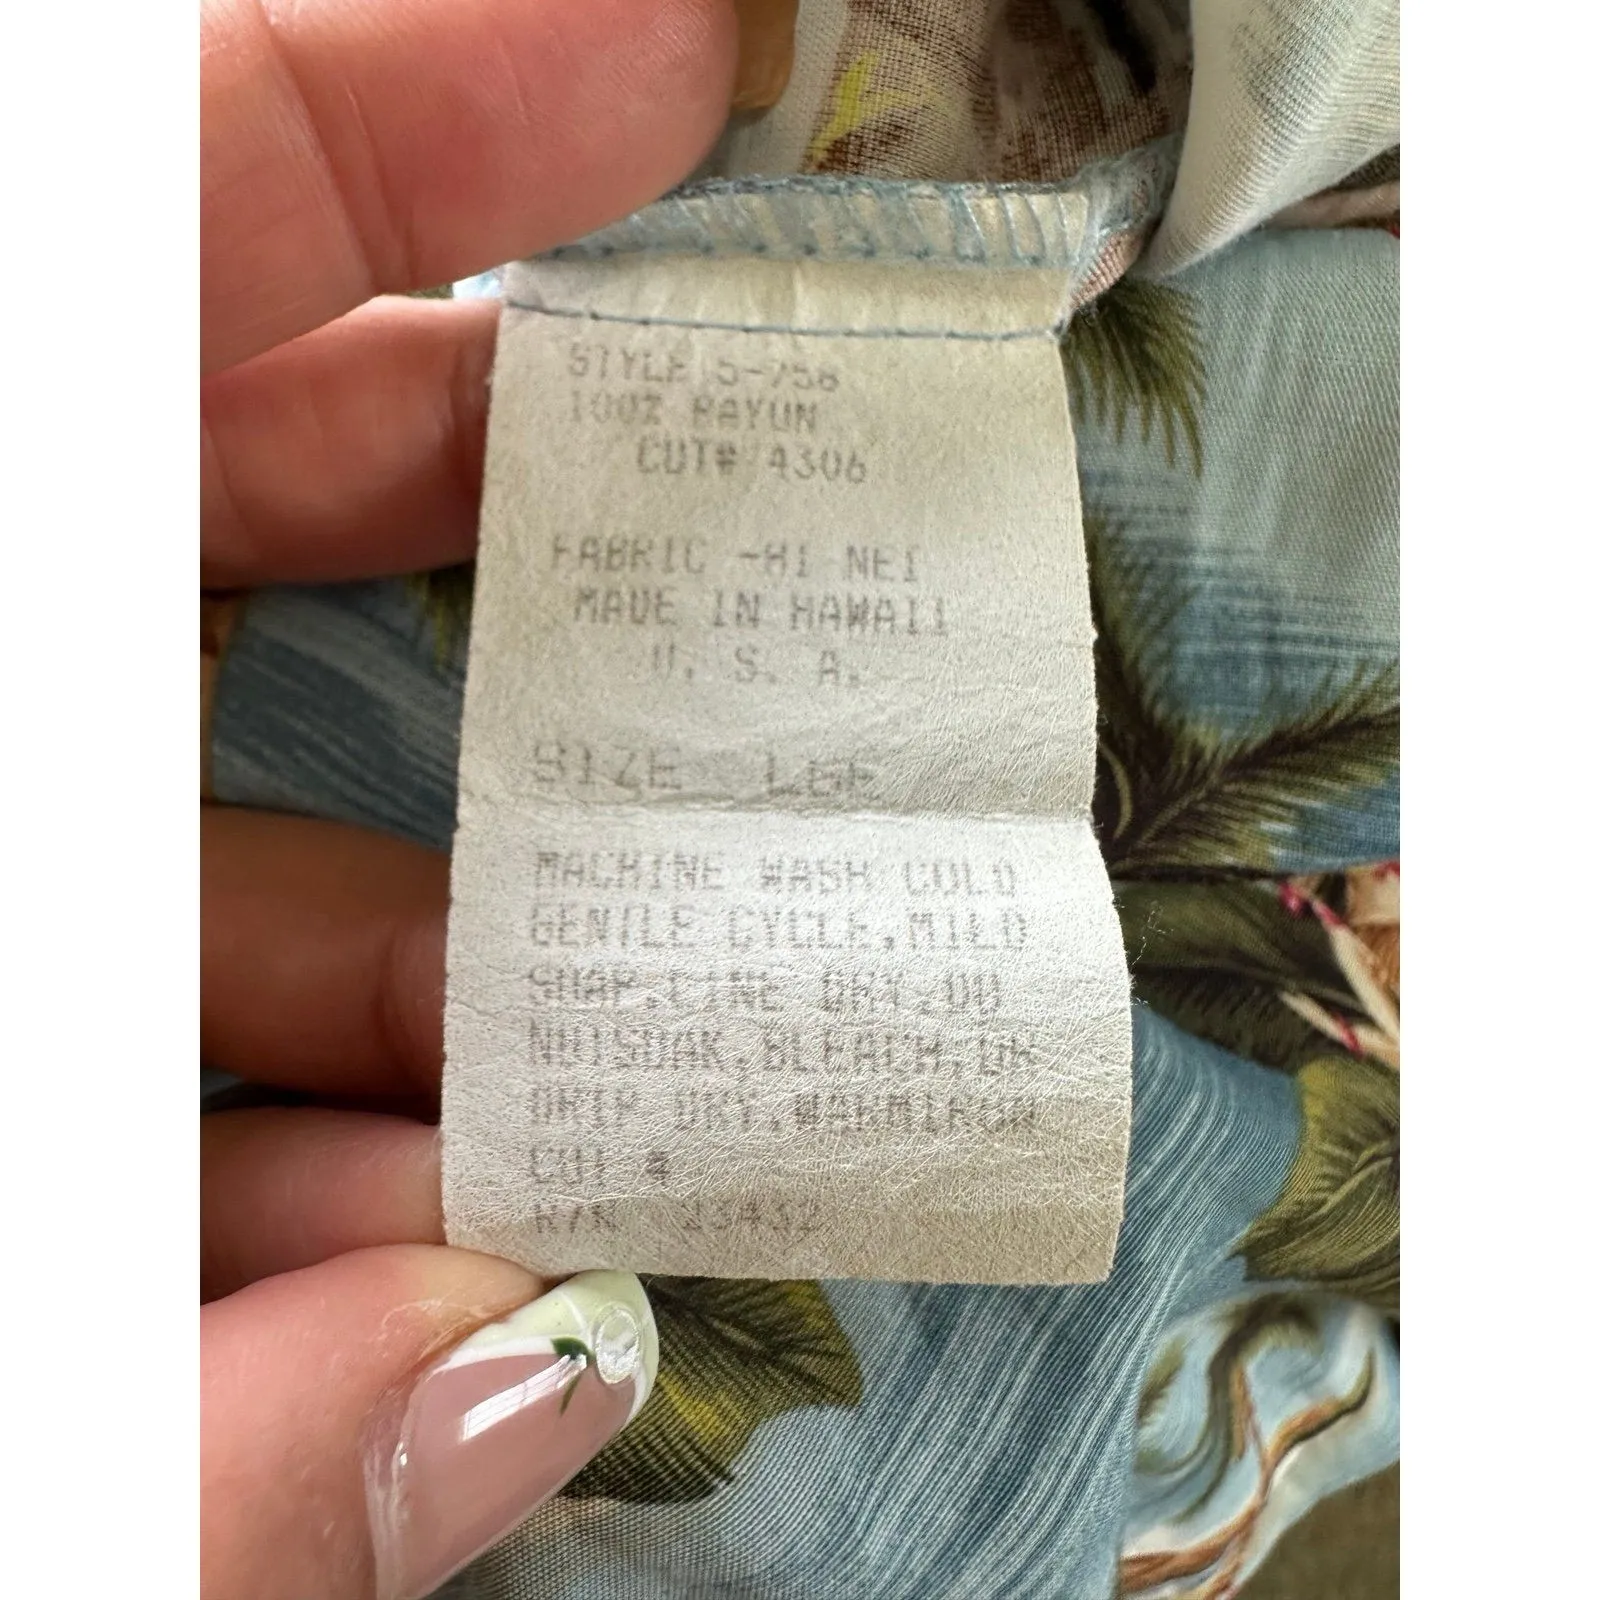 STYLE 5-758
100% RAYON
CUT# 4306
FABRIC -HI NEI
MADE IN HAWAII
U. S. A.
SIZE LGE
MACHINE WASH COLD
GENTLE CYCLE,MILD
SOAP,LINE DRY,DO
NOTSOAK,BLEACH,OR
DRIP DRY,WARMIRON
CUT #
23432